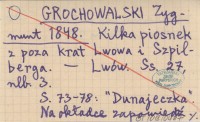 GROCHOWALSKI Zyg-
munt 1848. Kilka piosnek
z poza krat Lwowa i Szpil-
berga. — Lwów. Ss. 27,
nlb. 3.
S. 73-78: "Dunajeczka".
Na okładce zapowiedź